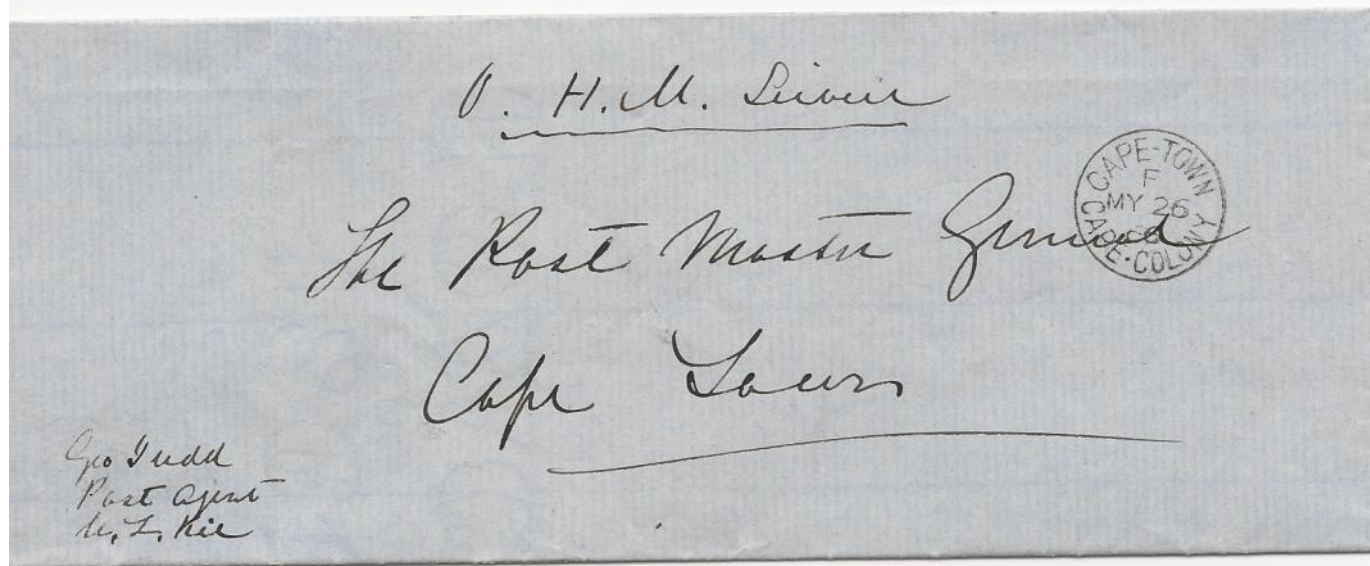 O. H. M. Service
The Post Master General
Cape Town
CAPE-TOWN
F
MY 26
CAPE-COLONY
Geo Judd
Post Agent